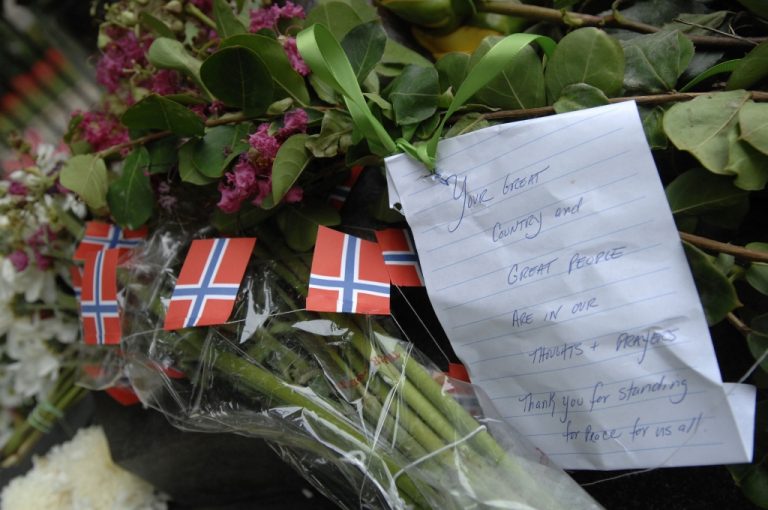 Your Great
Country and
Great People
Are in our
Thouts + Prayers
Thank you for standing
for Peace for us all.